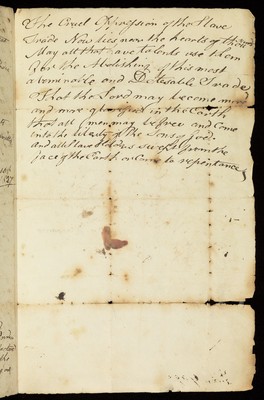 The Cruel Oppression of the Slave
Trade Now lies near the hearts of them
May all that have talents use them
for the Abolishing of this most
abominable and Detestable Trade
that the Lord may become more
and more glorified in the Earth
that all men may be free and Come
into the liberty of the Sons of God
and all Slave Holders swept from the
face of the Earth or Come to repentance